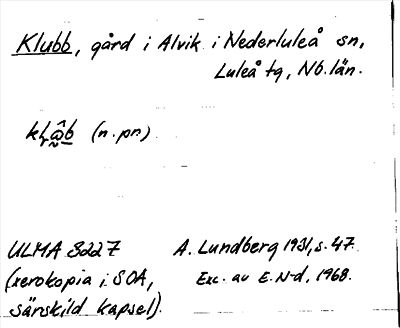 Klubb, gård i Alvik i Nederluleå sn,
Luleå tg, Nb. län.
(n. pn)
ULMA 3227 A. Lundberg 1931, s. 47.
(xerokopia i SOA, Exc. av E. N-d, 1968.
särskild kapsel).